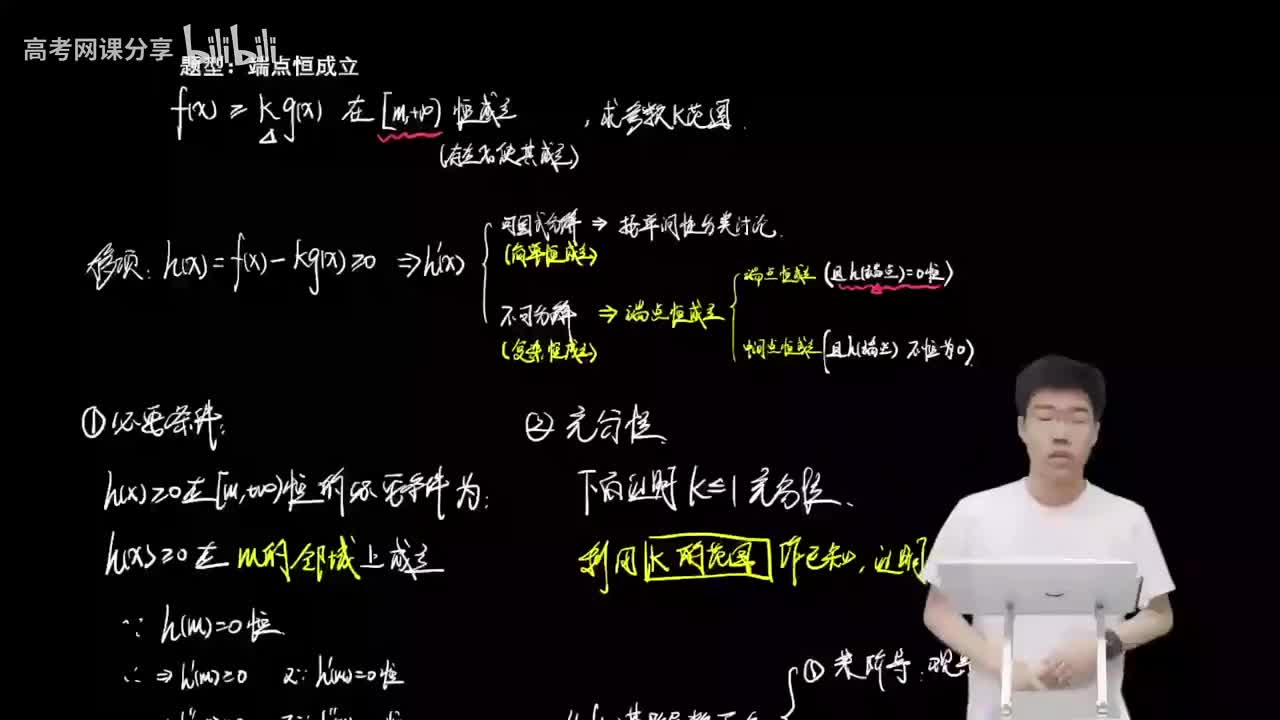 高考网课分享 bilibili
题型：端点恒成立
f(x) ≥ k g(x) 在 [m,+∞) 恒成立，求参数k范围.
(存在x使其成立)
移项: h(x) = f(x) - kg(x) ≥ 0 ⇒ h'(x)
可因式分解 ⇒ 按单调性分类讨论.
(简单恒成立)
端点恒成立 (且h(端点)=0恒)
不可分解 ⇒ 端点恒成立
(复杂恒成立)
中间点恒成立 (且h(端点) 不恒为0)
① 必要条件: ② 充分性.
h(x)≥0在[m,+∞)恒的必要条件为:
下面证明 k≤1 充分性.
h(x)≥0在 m的邻域上成立
利用 k的范围 作已知
∵ h(m)=0恒.
∴ ⇒ h'(m)≥0 又∵ h'(m)=0恒
① 求阶导: